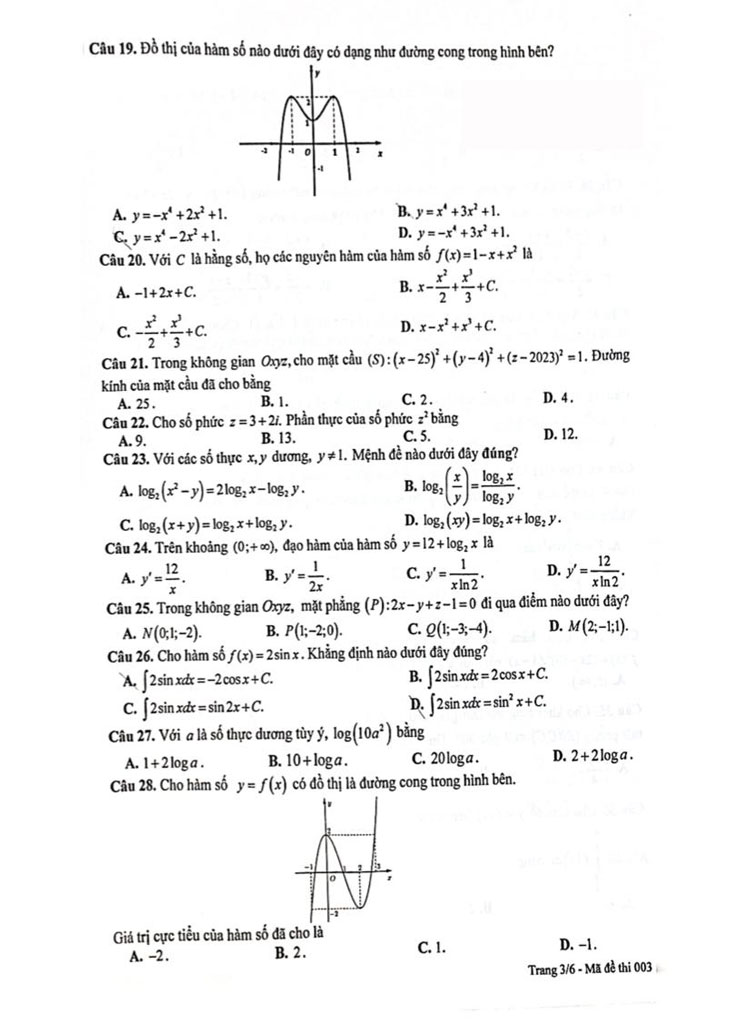 Câu 19. Đồ thị của hàm số nào dưới đây có dạng như đường cong trong hình bên?
y
2
1
-2 -1 O 1 2 x
-1
A. y = −x⁴ + 2x² + 1. B. y = x⁴ + 3x² + 1.
C. y = x⁴ − 2x² + 1. D. y = −x⁴ + 3x² + 1.
Câu 20. Với C là hằng số, họ các nguyên hàm của hàm số f(x) = 1 − x + x² là
A. −1 + 2x + C. B. x − x²/2 + x³/3 + C.
C. −x²/2 + x³/3 + C. D. x − x² + x³ + C.
Câu 21. Trong không gian Oxyz, cho mặt cầu (S): (x − 25)² + (y − 4)² + (z − 2023)² = 1. Đường
kính của mặt cầu đã cho bằng
A. 25. B. 1. C. 2. D. 4.
Câu 22. Cho số phức z = 3 + 2i. Phần thực của số phức z² bằng
A. 9. B. 13. C. 5. D. 12.
Câu 23. Với các số thực x, y dương, y ≠ 1. Mệnh đề nào dưới đây đúng?
A. log₂(x² − y) = 2log₂x − log₂y. B. log₂(x/y) = log₂x/log₂y.
C. log₂(x + y) = log₂x + log₂y. D. log₂(xy) = log₂x + log₂y.
Câu 24. Trên khoảng (0; +∞), đạo hàm của hàm số y = 12 + log₂x là
A. y' = 12/x. B. y' = 1/2x. C. y' = 1/x ln 2. D. y' = 12/x ln 2.
Câu 25. Trong không gian Oxyz, mặt phẳng (P): 2x − y + z − 1 = 0 đi qua điểm nào dưới đây?
A. N(0;1;−2). B. P(1;−2;0). C. Q(1;−3;−4). D. M(2;−1;1).
Câu 26. Cho hàm số f(x) = 2sin x. Khẳng định nào dưới đây đúng?
A. ∫2sin xdx = −2cos x + C. B. ∫2sin xdx = 2cos x + C.
C. ∫2sin xdx = sin 2x + C. D. ∫2sin xdx = sin² x + C.
Câu 27. Với a là số thực dương tùy ý, log(10a²) bằng
A. 1 + 2log a. B. 10 + log a. C. 20log a. D. 2 + 2log a.
Câu 28. Cho hàm số y = f(x) có đồ thị là đường cong trong hình bên.
2
-1 O 1 2 3 x
-2
Giá trị cực tiểu của hàm số đã cho là
A. −2. B. 2. C. 1. D. −1.
Trang 3/6 - Mã đề thi 003